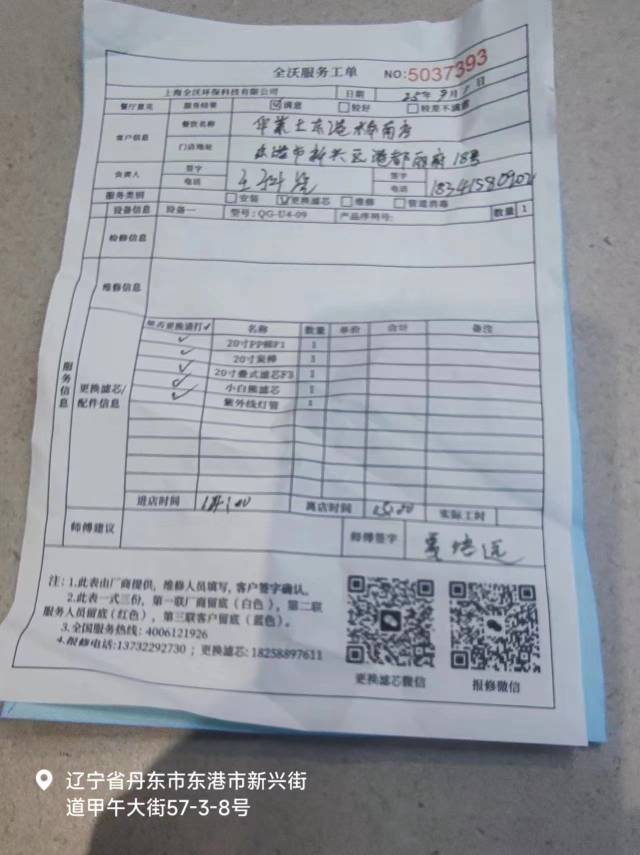 全沃服务工单 NO:5037393
上海全沃环保科技有限公司 日期 25年9月1日
餐厅意见 服务结果 ☑满意 □较好 □较差不满意
客户信息 餐饮名称 华莱士东港桥南店
门店地址 东港市新兴区港都丽府18号
负责人 签字 电话 签字 电话 18341580902
服务类别 □安装 ☑更换滤芯 □维修 □管道消毒
设备信息 设备一 型号:QG-U4-09 产品序列号: 数量 1
检修信息
维修信息
服务信息 更换滤芯/配件信息
是否更换请打✓ 名称 数量 单价 合计 备注
✓ 20寸PP棉F1 1
✓ 20寸炭棒 1
✓ 20寸叠式滤芯F3 1
✓ 小白熊滤芯 1
紫外线灯管 1
进店时间 离店时间 15:00 实际工时
师傅建议 师傅签字
注:1.此表由厂商提供,维修人员填写,客户签字确认。
2.此表一式三份,第一联厂商留底(白色),第二联
服务人员留底(红色),第三联客户留底(蓝色)。
3.全国服务热线:4006121926
4.报修电话:13732292730;更换滤芯:18258897611
更换滤芯微信 报修微信
辽宁省丹东市东港市新兴街
道甲午大街57-3-8号